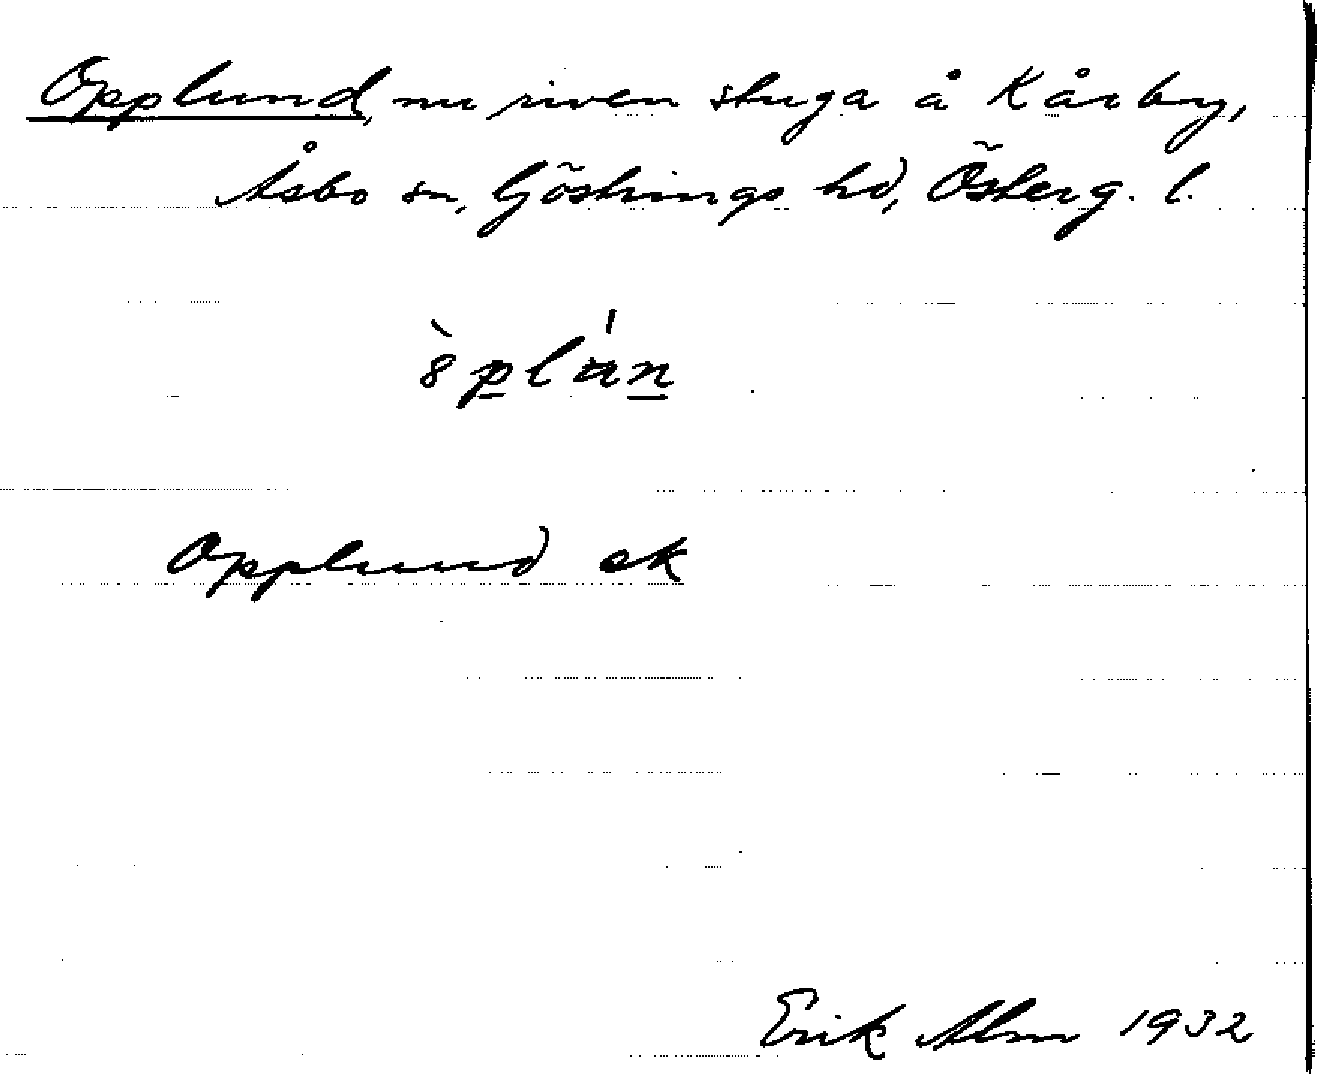 Opplund, nu riven stuga å Kårby,
Åsbo sn, Göstrings hd, Österg. l.
Opplund ek
Erik Alm 1932